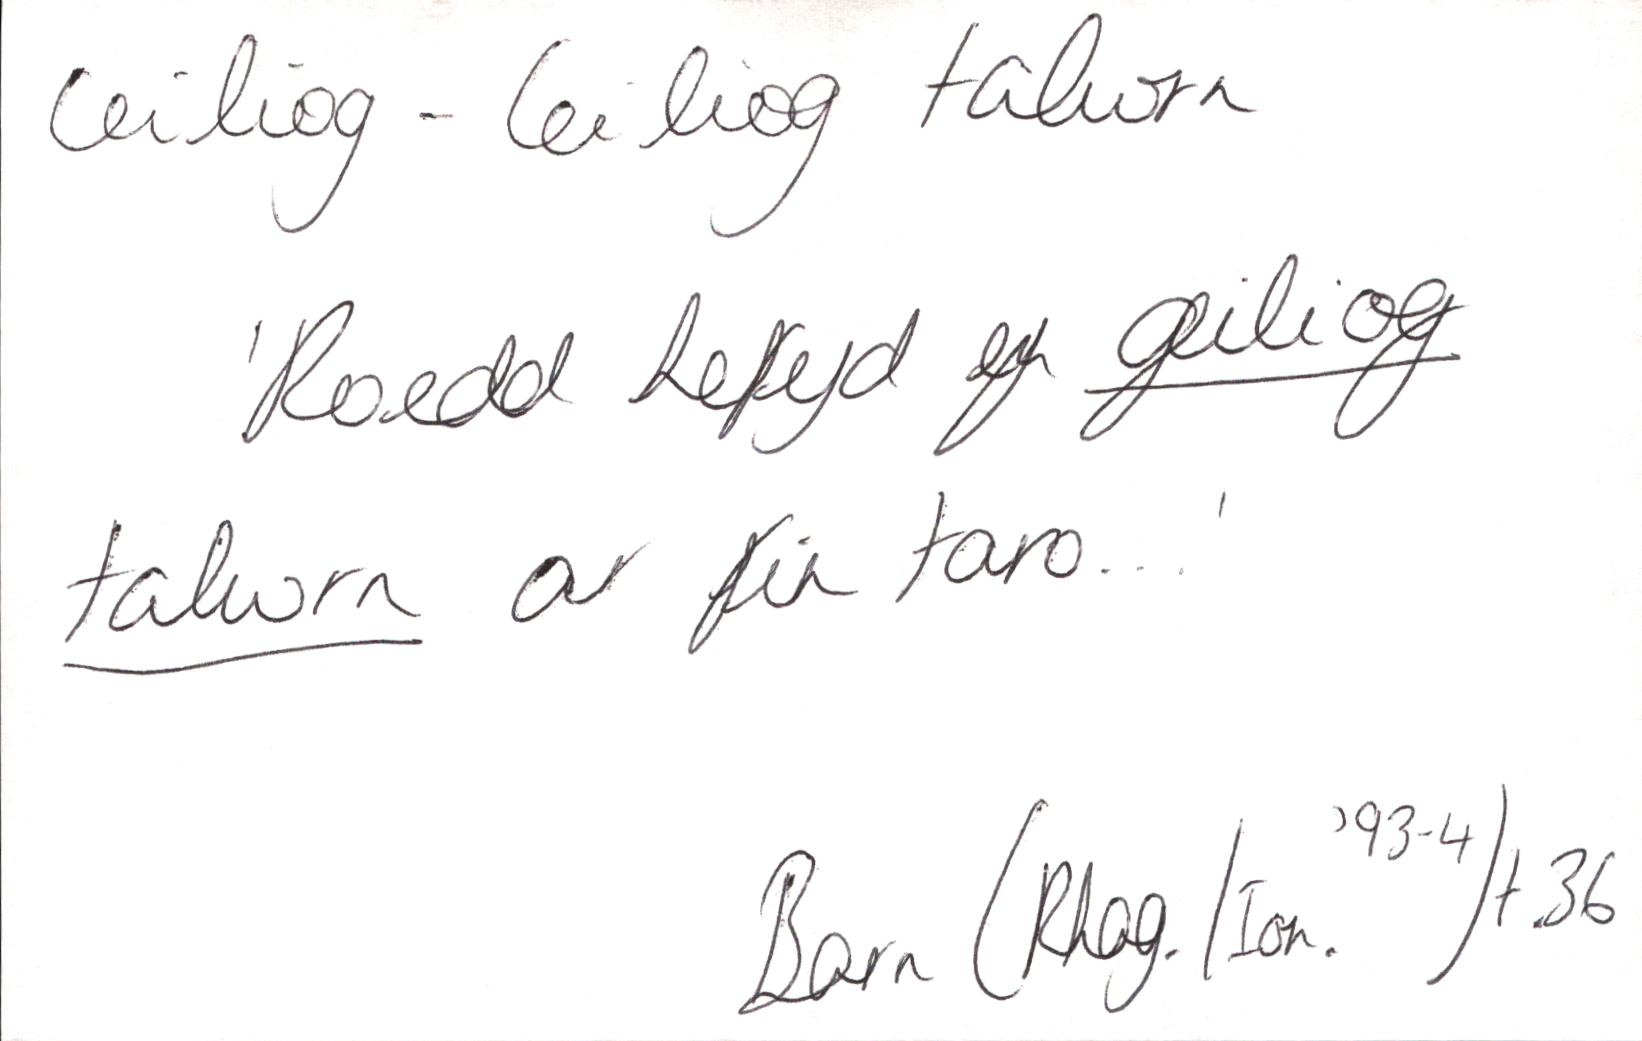 Ceiliog - Ceiliog talwrn
'Roedd hefyd yn geiliog
talwrn ar fin taro...'
Barn (Rhag./Ion. '93-4) t.36